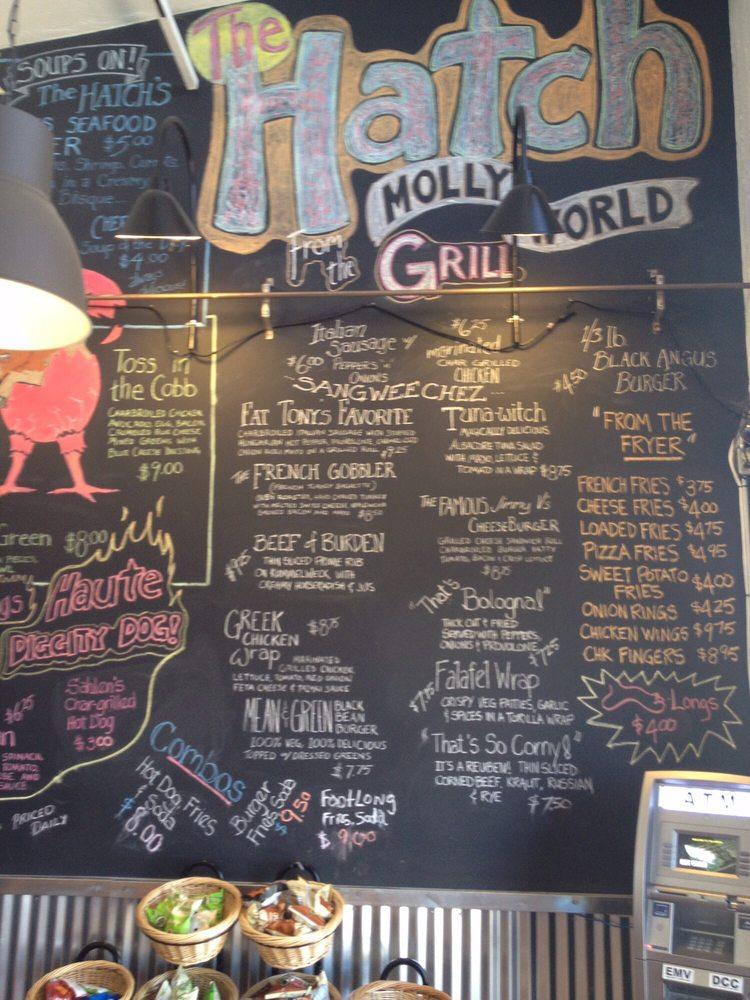 The
Hatch
MOLLY WORLD
From
the
GRILL
SOUPS ON!
The HATCH'S
SEAFOOD
$5.00
Shrimp, Corn
in a Creamy
Bisque...
Soup of the Day
$4.00
Toss in
the Cobb
CHARBROILED CHICKEN
AVOCADO, EGG, BACON,
CRUMBLED BLUE CHEESE
MIXED GREENS WITH
BLUE CHEESE DRESSING
$9.00
Green $8.00
Haute
DIGGITY DOG!
Sahlen's
Char-grilled
Hot Dog
$3.00
SPINACH,
TOMATO,
SAUCE
PRICED
DAILY
Italian
Sausage w/
$6.00 PEPPERS 'n'
ONIONS
$6.25
marinated
CHAR GRILLED
CHICKEN
$4.50
1/3 lb.
BLACK ANGUS
BURGER
SANGWEECHEZ...
FAT TONY'S FAVORITE
CHARBROILED ITALIAN SAUSAGE WITH STUFFED
HUNGARIAN HOT PEPPER, PROVOLONE, CARAMELIZED
ONION AIOLI MAYO ON A GRILLED ROLL $9.25
THE FRENCH GOBBLER
OVEN ROASTED, HAND CARVED TURKEY
WITH MELTED SWISS CHEESE,
SMOKED BACON AND MAYO
BEEF & BURDEN
THIN SLICED PRIME RIB
ON KUMMELWECK, WITH
CREAMY HORSERADISH & JUS
GREEK $8.75
CHICKEN
Wrap MARINATED
GRILLED CHICKEN,
LETTUCE, TOMATO, RED ONION
FETA CHEESE & TZIZIKI SAUCE
MEAN & GREEN BLACK
BEAN
BURGER
100% VEG, 100% DELICIOUS
TOPPED w/ DRESSED GREENS
$7.75
Tuna-witch
MAGICALLY DELICIOUS
ALBACORE TUNA SALAD
WITH MAYO, LETTUCE &
TOMATO IN A WRAP $8.75
THE FAMOUS Jimmy V's
CHEESEBURGER
GRILLED CHEESE SANDWICH ROLL
CHARBROILED BURGER PATTY
TOMATO, BACON & CRISP LETTUCE
$8.75
"That's
Bologna!"
THICK CUT & FRIED
SERVED WITH PEPPERS,
ONIONS & PROVOLONE $7.25
Falafel Wrap
$7.75 CRISPY VEG PATTIES, GARLIC
& SPICES IN A TORTILLA WRAP
"That's So Corny!"
IT'S A REUBEN! THIN SLICED
CORNED BEEF, KRAUT, RUSSIAN
& RYE $7.50
"FROM THE
FRYER"
FRENCH FRIES $3.75
CHEESE FRIES $4.00
LOADED FRIES $4.75
PIZZA FRIES $4.95
SWEET POTATO
FRIES $4.00
ONION RINGS $4.25
CHICKEN WINGS $9.75
CHK FINGERS $8.95
Longs
$4.00
Combos
Hot Dog, Fries
& Soda
$8.00
Burger
Fries, Soda
$9.50
FootLong
Fries, Soda
$9.00
ATM
EMV
DCC